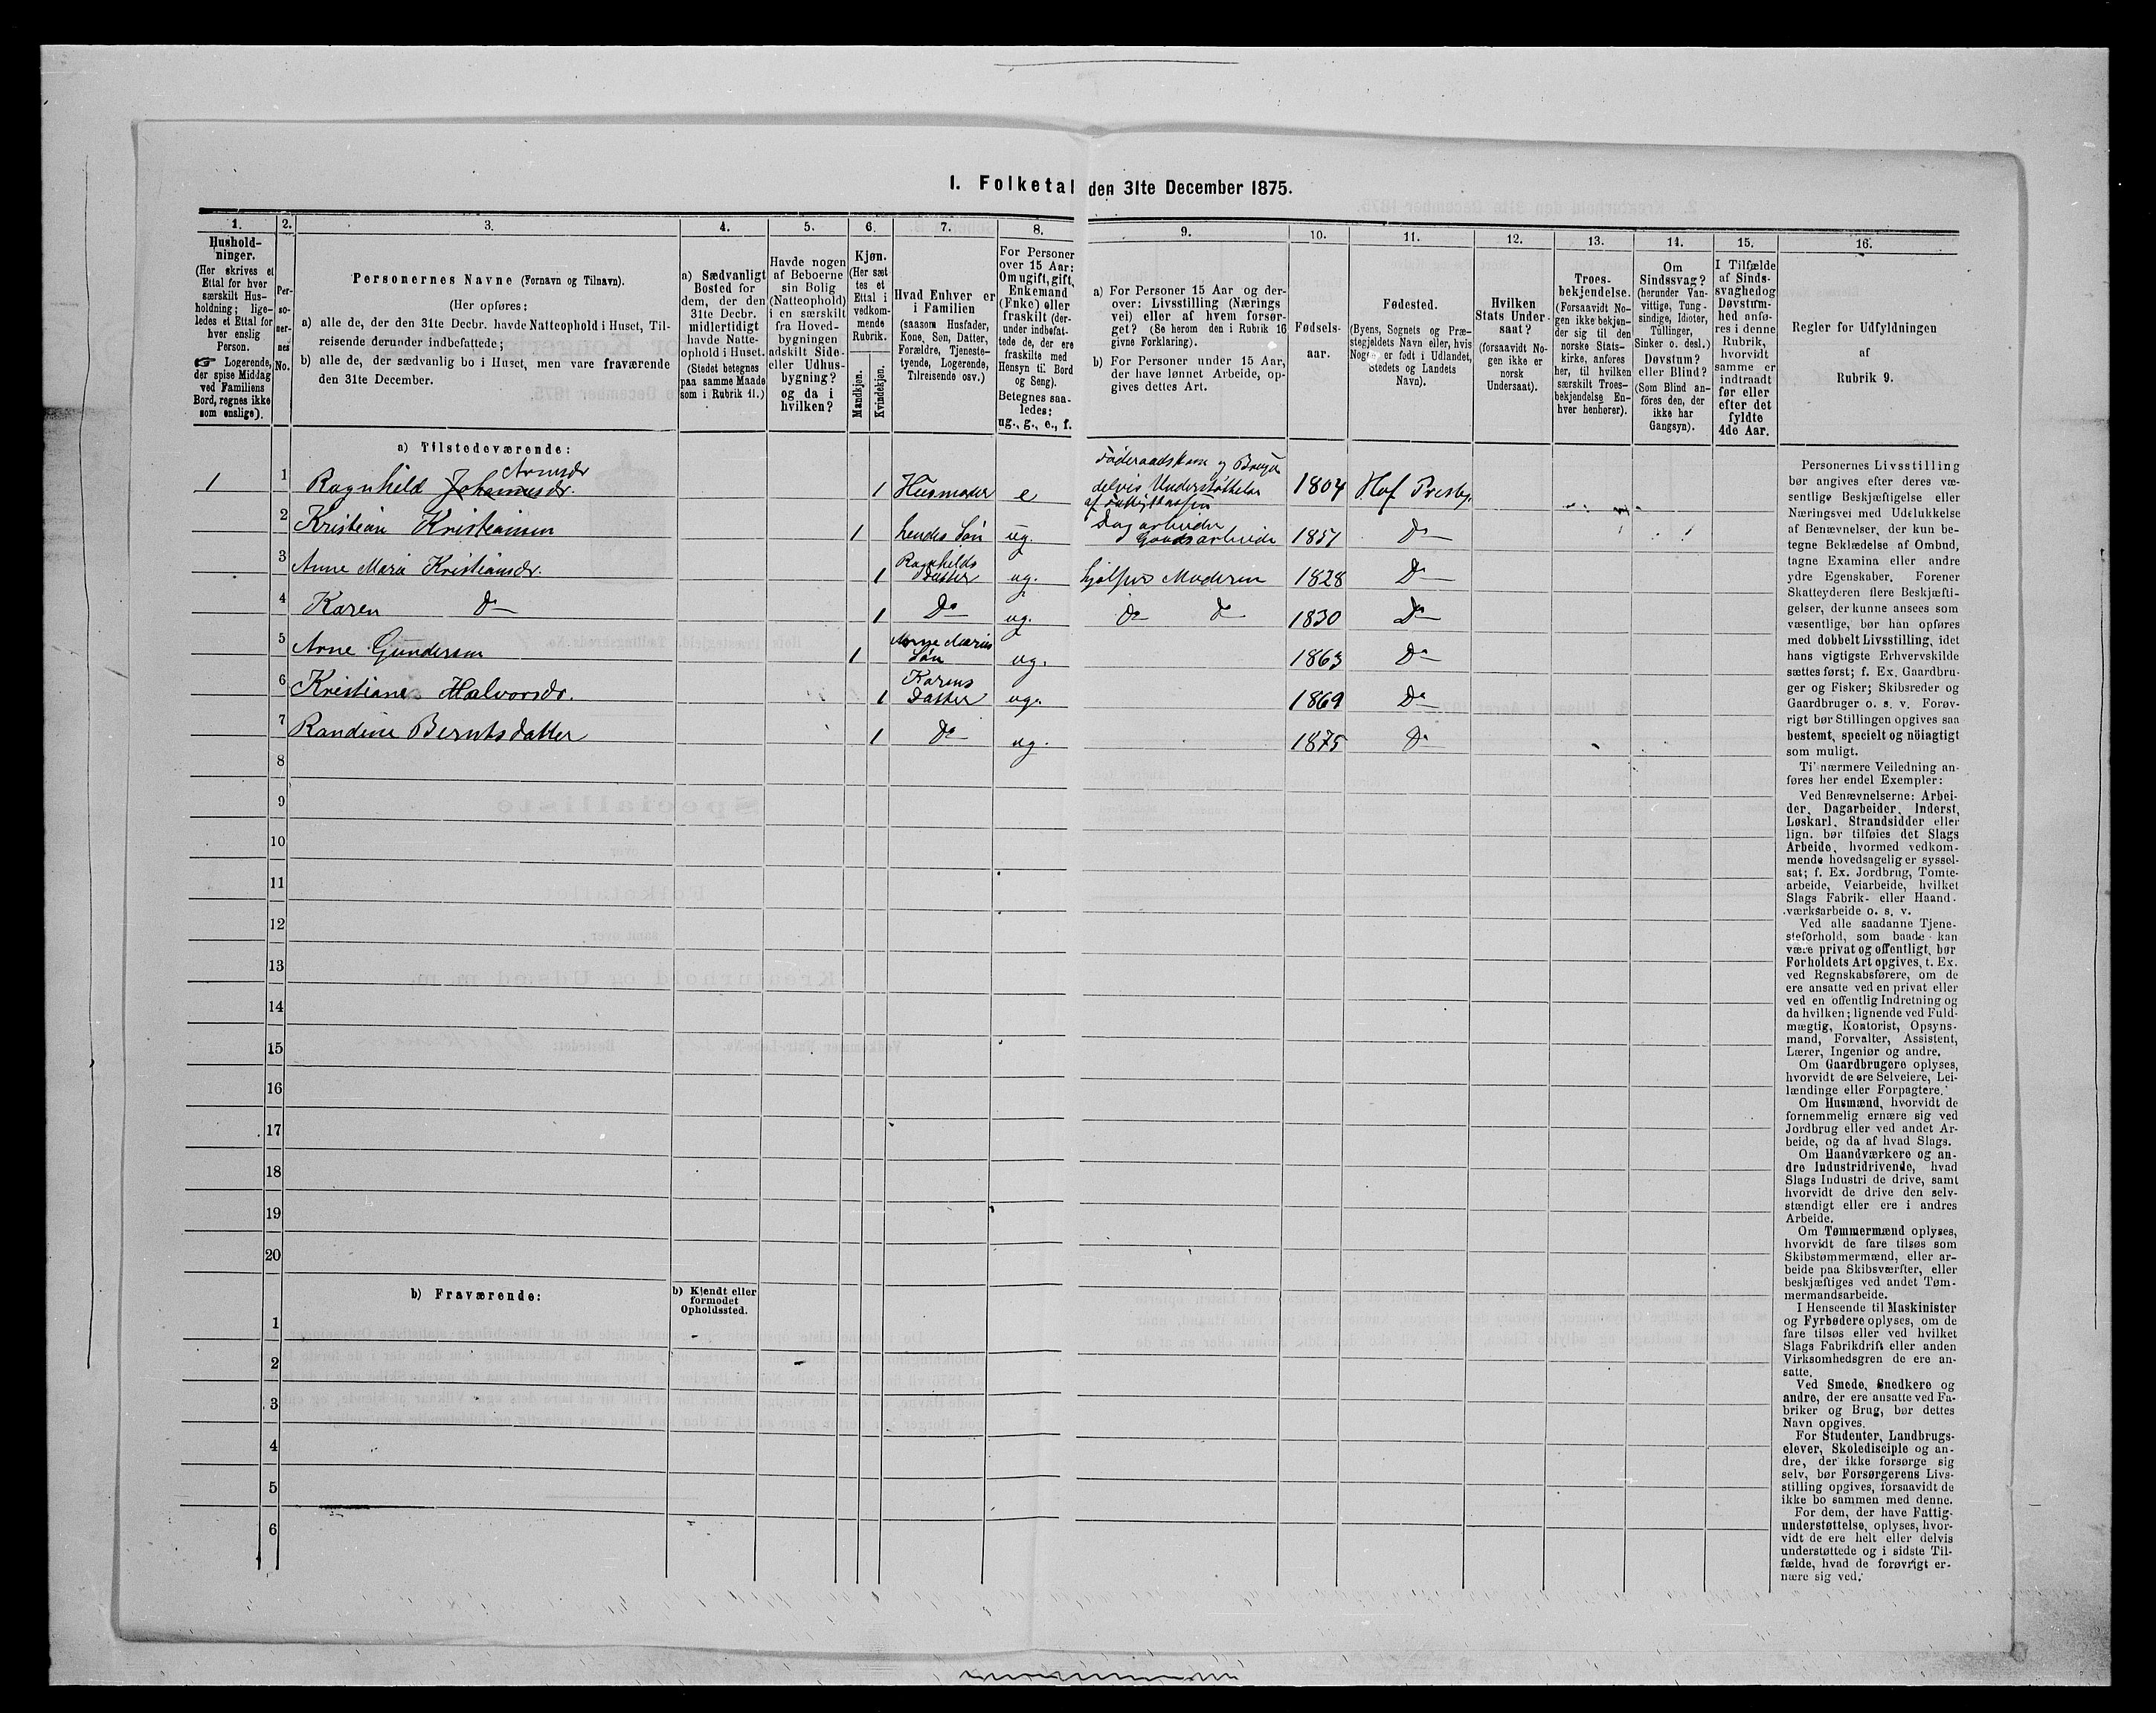 I. Folketal den 31te December 1875.
1. 2. 3. 4. 5. 6. 7. 8. 9. 10. 11. 12. 13. 14. 15. 16.
Hushold-
ninger.
(Her skrives et
Ettal for hver
særskilt Hus-
holdning; lige-
ledes et Ettal for
hver enslig
Person.
☞ Logerende,
der spise Middag
ved Familiens
Bord, regnes ikke
som enslige).
Per-
so-
ner-
nes
No.
Personernes Navne (Fornavn og Tilnavn).
(Her opføres:
a) alle de, der den 31te Decbr. havde Natteophold i Huset, Til-
reisende derunder indbefattede;
b) alle de, der sædvanlig bo i Huset, men vare fraværende
den 31te December.
a) Sædvanligt
Bosted for
dem, der den
31te Decbr.
midlertidigt
havde Natte-
ophold i Huset.
(Stedet betegnes
paa samme Maade
som i Rubrik 11.)
Havde nogen
af Beboerne
sin Bolig
(Natteophold)
i en særskilt
fra Hoved-
bygningen
adskilt Side-
eller Udhus-
bygning?
og da i
hvilken?
Kjøn.
(Her sæt
tes et
Ettal i
vedkom-
mende
Rubrik.
Mandkjøn.
Kvindekjøn.
Hvad Enhver er
i Familien
(saasom Husfader,
Kone, Søn, Datter,
Forældre, Tjeneste-
tyende, Logerende,
Tilreisende osv.)
For Personer
over 15 Aar:
Om ugift, gift,
Enkemand
(Enke) eller
fraskilt (der-
under indbefat-
tede de, der ere
fraskilte med
Hensyn til Bord
og Seng).
Betegnes saa-
ledes:
ug., g., e., f.
a) For Personer 15 Aar og der-
over: Livsstilling (Nærings
vei) eller af hvem forsør-
get? (Se herom den i Rubrik 16
givne Forklaring).
b) For Personer under 15 Aar,
der have lønnet Arbeide, op-
gives dettes Art.
Fødsels-
aar.
Fødested.
(Byens, Sognets og Præ-
stegjeldets Navn eller, hvis
Nogen er født i Udlandet,
Stedets og Landets
Navn).
Hvilken
Stats Under-
saat?
(forsaavidt No-
gen ikke er
norsk
Undersaat).
Troes-
bekjendelse.
(Forsaavidt No-
gen ikke bekjen-
der sig til den
norske Stats-
kirke, anføres
her, til hvilken
særskilt Troes-
bekjendelse En-
hver henhører).
Om
Sindssvag?
(herunder Van-
vittige, Tung-
sindige, Idioter,
Tullinger,
Sinker o. desl.)
Døvstum?
eller Blind?
(Som Blind an-
føres den, der
ikke har
Gangsyn).
I Tilfælde
af Sinds-
svaghed og
Døvstum-
hed anfø-
res i denne
Rubrik,
hvorvidt
samme er
indtraadt
før eller
efter det
fyldte
4de Aar.
Regler for Udfyldningen
af
Rubrik 9.
a) Tilstedeværende:
Arnesdr
1 1 Ragnhild Johannesdr. 1 Husmoder e Føderaadskone og delvis Understøttelse af 1804 Hof Prestg
2 Kristian Kristiansen 1 hendes Søn ug. Dagarbeider Gaardsarbeide 1851 Do
3 Anne Marie Kristiansdr. 1 Ragnhilds Datter ug. hjælper Moderen 1828 Do
4 Karen Do 1 Do ug. Do Do 1830 Do
5 Arne Gundersen 1 Anne Maries Søn ug. 1863 Do
6 Kristiane Halvorsdr. 1 Karens Datter ug. 1869 Do
7 Randine Berntsdatter 1 Do ug. 1875 Do
8
9
10
11
12
13
14
15
16
17
18
19
20
b) Fraværende:
b) Kjendt eller
formodet
Opholdssted.
1
2
3
4
5
6
Personernes Livsstilling
bør angives efter deres væ-
sentlige Beskjæftigelse eller
Næringsvei med Udelukkelse
af Benævnelser, der kun be-
tegne Beklædelse af Ombud,
tagne Examina eller andre
ydre Egenskaber. Forener
Skatteyderen flere Beskjæfti-
gelser, der kunne ansees som
væsentlige, bør han opføres
med dobbelt Livsstilling, idet
hans vigtigste Erhvervskilde
sættes først; f. Ex. Gaardbru-
ger og Fisker; Skibsreder og
Gaardbruger o. s. v. Forøv-
rigt bør Stillingen opgives saa
bestemt, specielt og nöiagtigt
som muligt.
Ti nærmere Veiledning an-
føres her endel Exempler:
Ved Benævnelserne: Arbei-
der, Dagarbeider, Inderst,
Løskarl, Strandsidder eller
lign. bør tilføies det Slags
Arbeide, hvormed vedkom-
mende hovedsagelig er syssel-
sat; f. Ex. Jordbrug, Tomte-
arbeide, Veiarbeide, hvilket
Slags Fabrik- eller Haand-
værksarbeide o. s. v.
Ved alle saadanne Tjene-
steforhold, som baade kan
være privat og offentligt, bør
Forholdets Art opgives, t. Ex.
ved Regnskabsførere, om de
ere ansatte ved en privat eller
ved en offentlig Indretning og
da hvilken; lignende ved Fuld-
mægtig, Kontorist, Opsyns-
mand, Forvalter, Assistent,
Lærer, Ingeniør og andre.
Om Gaardbrugere oplyses,
hvorvidt de ere Selveiere, Lei-
lændinge eller Forpagtere.
Om Husmænd, hvorvidt de
fornemmelig ernære sig ved
Jordbrug eller ved andet Ar-
beide, og da af hvad Slags.
Om Haandværkere og an-
dre Industridrivende, hvad
Slags Industri de drive, samt
hvorvidt de drive den selv-
stændigt eller ere i andres
Arbeide.
Om Tømmermænd oplyses,
hvorvidt de fare tilsøs som
Skibstømmermænd, eller ar-
beide paa Skibsværfter, eller
beskjæftiges ved andet Tøm-
mermandsarbeide.
I Henseende til Maskinister
og Fyrbødere oplyses, om de
fare tilsøs eller ved hvilket
Slags Fabrikdrift eller anden
Virksomhedsgren de ere an-
satte.
Ved Smede, Snedkere og
andre, der ere ansatte ved Fa-
briker og Brug, bør dettes
Navn opgives.
For Studenter, Landbrugs-
elever, Skoledisciple og an-
dre, der ikke forsørge sig
selv, bør Forsørgerens Livs-
stilling opgives, forsaavidt de
ikke bo sammen med denne.
For dem, der have Fattig-
understøttelse, oplyses, hvor-
vidt de ere helt eller delvis
understøttede og i sidste Til-
fælde, hvad de forøvrigt er-
nære sig ved.